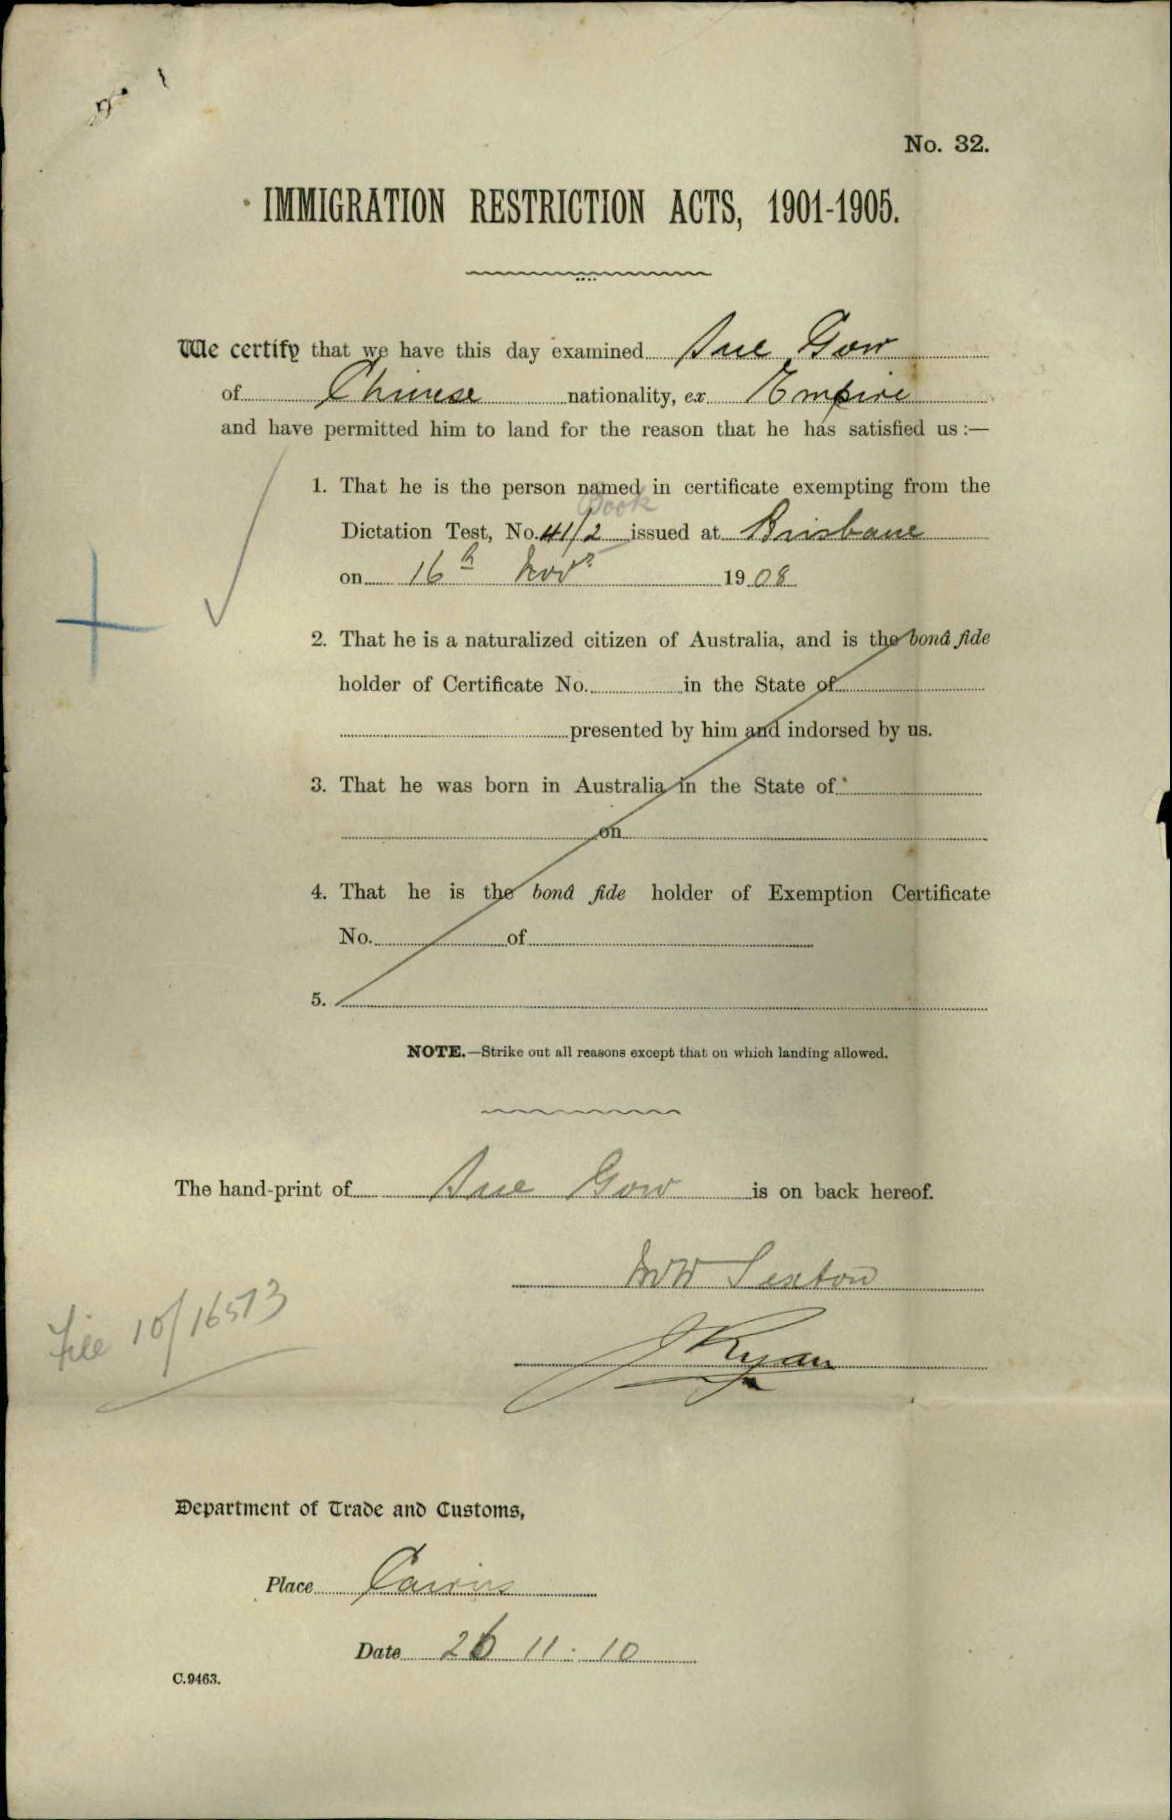 No. 32.
IMMIGRATION RESTRICTION ACTS, 1901-1905.
We certify that we have this day examined Sue Gow
of Chinese nationality, ex Empire
and have permitted him to land for the reason that he has satisfied us :—
1. That he is the person named in certificate exempting from the
Book
Dictation Test, No. 41/2 issued at Brisbane
on 16th Novr 1908
2. That he is a naturalized citizen of Australia, and is the bonâ fide
holder of Certificate No. in the State of
presented by him and indorsed by us.
3. That he was born in Australia in the State of
on
4. That he is the bonâ fide holder of Exemption Certificate
No. of
5.
NOTE.—Strike out all reasons except that on which landing allowed.
The hand-print of Sue Gow is on back hereof.
Sexton
File 10/16573
J Ryan
Department of Trade and Customs,
Place Cairns
Date 26 11. 10
C.9463.